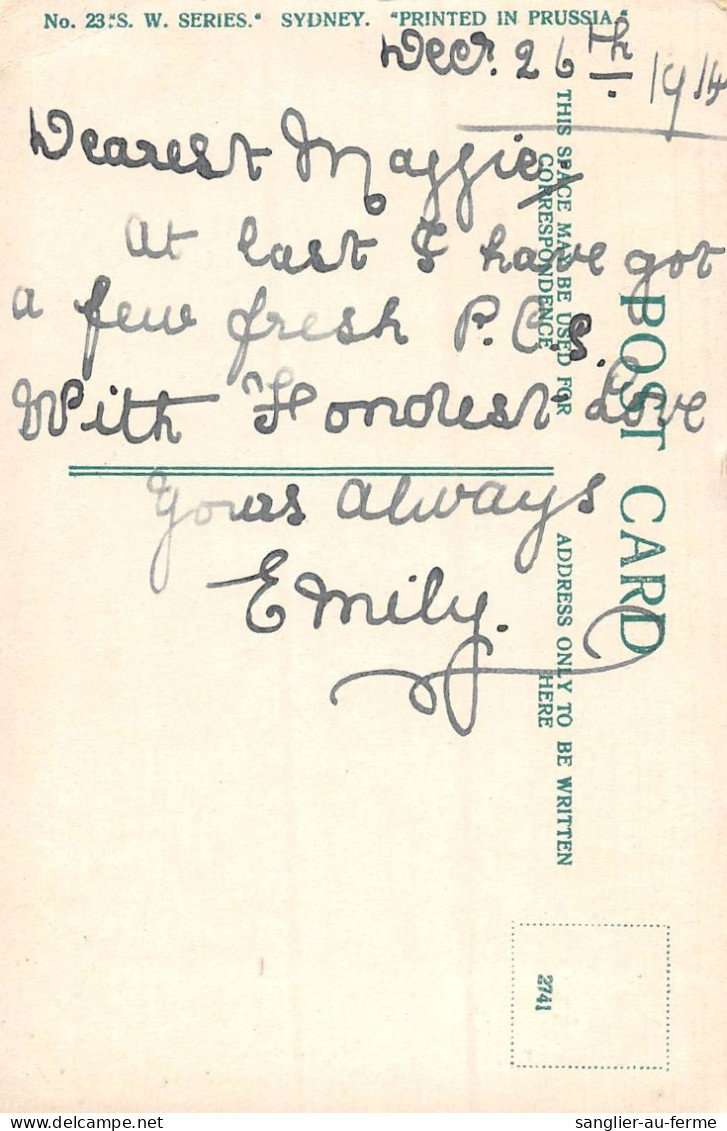 No. 23 "S. W. SERIES." SYDNEY. "PRINTED IN PRUSSIA."
Decr. 26th 1914
Dearest Maggie
At last I have got
a few fresh P.C.S.
With Fondest Love
Yours always
Emily.
POST CARD
THIS SPACE MAY BE USED FOR
CORRESPONDENCE
ADDRESS ONLY TO BE WRITTEN
HERE
2741
sanglier-au-ferme.com